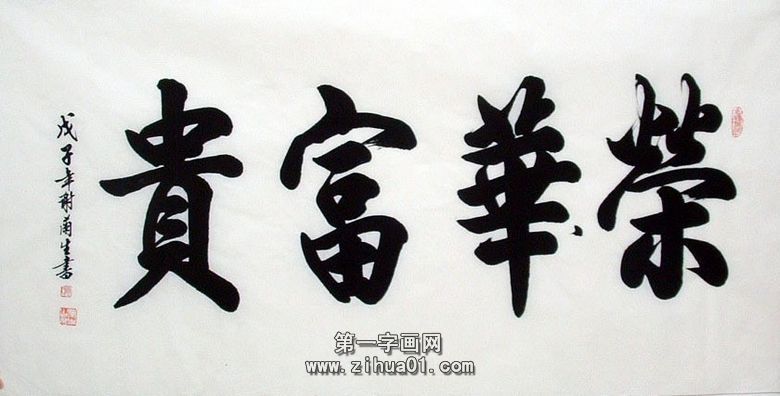 榮華富貴
戊子年谢蘭生書
第一字画网
www.zihua01.com